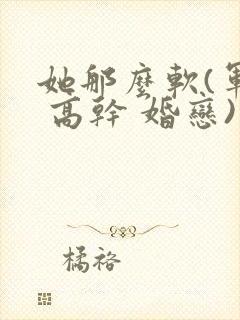 她那麼軟(軍
高幹 婚戀)
橘祫